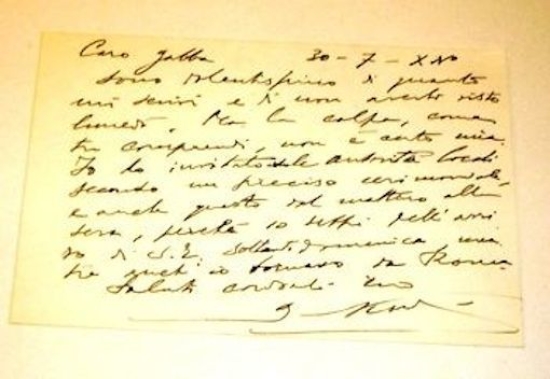 Caro Gabba 30-7-XII°
sono dolentissimo di quanto
mi scrivi e di non averti visto
lunedì. Ma la colpa, come
tu comprendi, non è certo mia.
Io ho invitato le autorità locali
secondo un preciso cerimoniale,
e anche questo dal mattino alla
sera, perché io seppi dell'arri
vo di S.E. soltanto domenica, men
tre quasi io tornavo da Roma.
Saluti cordiali tuo